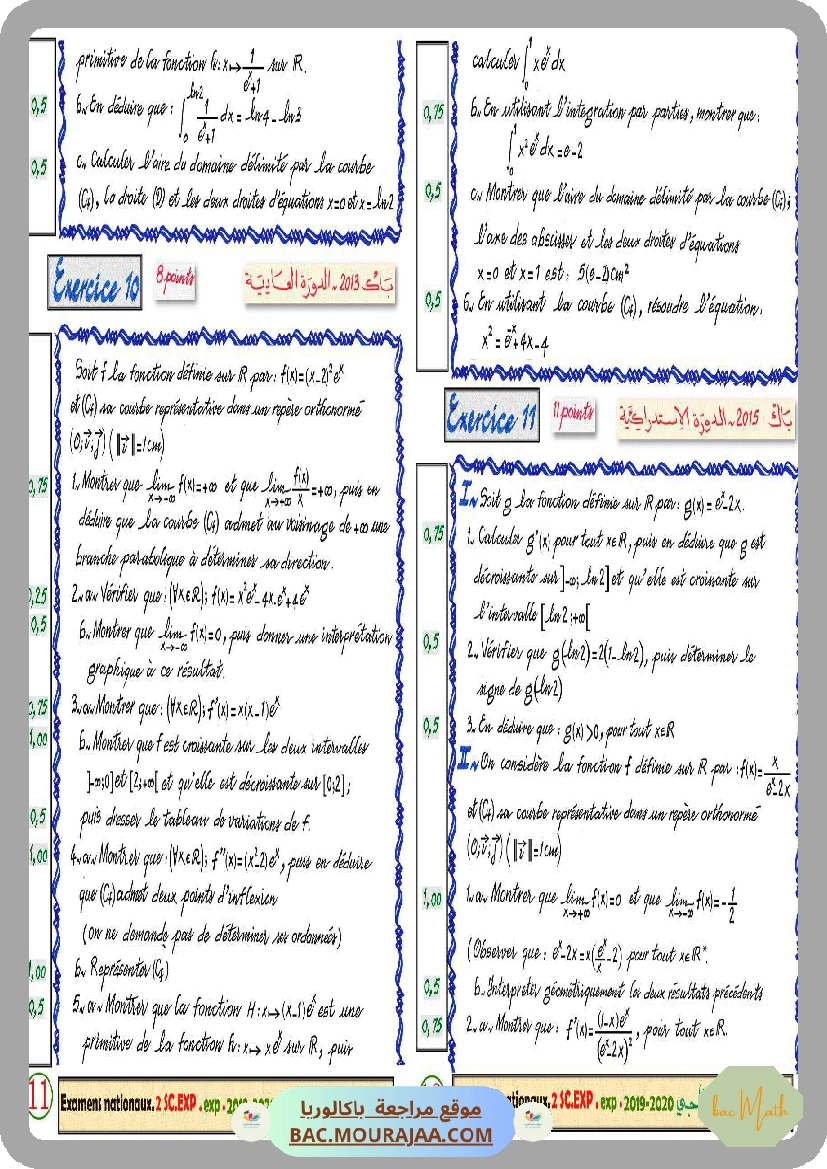 primitive de la fonction h: x↦ 1/(eˣ+1) sur ℝ.
0,5
b. En déduire que: ∫₀^ln2 1/(eˣ+1) dx = ln4 - ln3
0,5
c. Calculer l'aire du domaine délimité par la courbe
(Cf), la droite (D) et les deux droites d'équations x=0 et x=ln2
Exercice 10
8 points
باك 2013 - الدورة العادية
Soit f la fonction définie sur ℝ par: f(x)=(x-2)²eˣ
et (Cf) sa courbe représentative dans un repère orthonormé
(O;i⃗;j⃗) (‖i⃗‖=1cm)
0,75
1. Montrer que lim x→-∞ f(x)=+∞ et que lim x→+∞ f(x)/x =+∞, puis en
déduire que la courbe (Cf) admet au voisinage de +∞ une
branche parabolique à déterminer sa direction.
0,25
2. a. Vérifier que: (∀x∈ℝ); f(x)= x²eˣ-4x.eˣ+4eˣ
0,5
b. Montrer que lim x→-∞ f(x)=0, puis donner une interprétation
graphique à ce résultat.
0,75
3. a. Montrer que: (∀x∈ℝ); f'(x)=x(x-1)eˣ
1,00
b. Montrer que f est croissante sur les deux intervalles
]-∞;0] et [2;+∞[ et qu'elle est décroissante sur [0;2];
0,5
puis dresser le tableau de variations de f.
1,00
4. a. Montrer que: (∀x∈ℝ); f''(x)=(x²-2)eˣ, puis en déduire
que (Cf) admet deux points d'inflexion
(on ne demande pas de déterminer ses ordonnées)
1,00
b. Représenter (Cf)
0,5
5. a. Montrer que la fonction H: x↦(x-1)eˣ est une
primitive de la fonction h: x↦ xeˣ sur ℝ, puis
11
Examens nationaux. 2 SC.EXP . exp .
calculer ∫₀¹ xeˣ dx
0,75
b. En utilisant l'intégration par parties, montrer que:
∫₀¹ x²eˣ dx = e-2
0,5
c. Montrer que l'aire du domaine délimité par la courbe (Cf);
l'axe des abscisses et les deux droites d'équations
x=0 et x=1 est: 5(e-2)cm²
0,5
6. En utilisant la courbe (Cf), résoudre l'équation:
x² = e⁻ˣ+4x-4
Exercice 11
11 points
باك 2015 - الدورة الاستدراكية
I. Soit g la fonction définie sur ℝ par: g(x) = eˣ-2x.
0,75
1. Calculer g'(x) pour tout x∈ℝ, puis en déduire que g est
décroissante sur ]-∞; ln2] et qu'elle est croissante sur
l'intervalle [ln2;+∞[
0,5
2. Vérifier que g(ln2)=2(1-ln2), puis déterminer le
signe de g(ln2)
0,5
3. En déduire que: g(x)>0, pour tout x∈ℝ
II. On considère la fonction f définie sur ℝ par: f(x)= x/(eˣ-2x)
et (Cf) sa courbe représentative dans un repère orthonormé
(O;i⃗;j⃗) (‖i⃗‖=1cm)
1,00
1. a. Montrer que lim x→+∞ f(x)=0 et que lim x→-∞ f(x)=-1/2
(Observer que: eˣ-2x=x(eˣ/x -2) pour tout x∈ℝ*.
0,5
b. Interpréter géométriquement les deux résultats précédents
0,75
2. a. Montrer que: f'(x)= (1-x)eˣ/(eˣ-2x)², pour tout x∈ℝ.
nationaux. 2 SC.EXP . exp . 2019-2020
bac Math
موقع مراجعة باكالوريا
BAC.MOURAJAA.COM